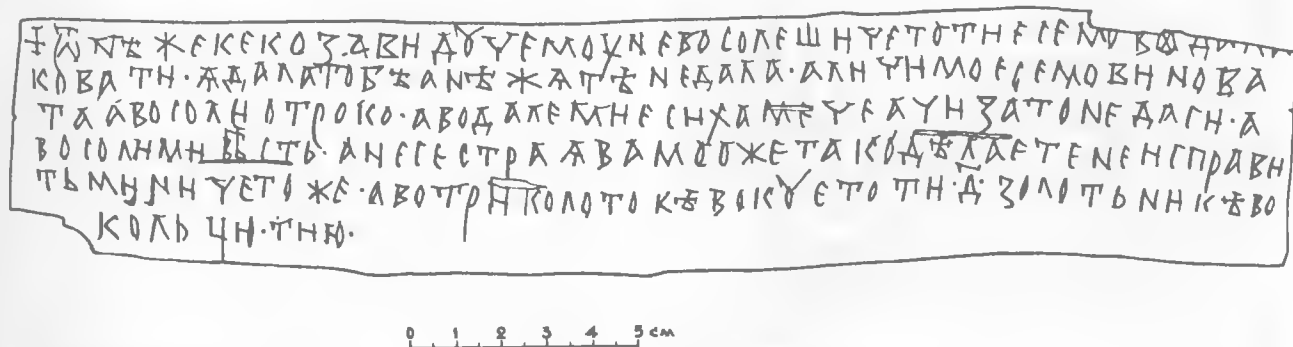 +ѿнѣжекекоз·авидоучемоуневосолешичетотиесемоводала
ковати·ѧдалатобѣанѣжатѣнедала·аличимоесемовинова
таавосолиотроко·аводалемиесихамечеачизатонедаси·а
восолимивѣсть·анесестраѧвамоожетакодѣлаетенеисправи
тьминичетоже·авотриколотокѣвокоуетоти·д҃·золотьникѣво
кольци·тию·
0 1 2 3 4 5 см